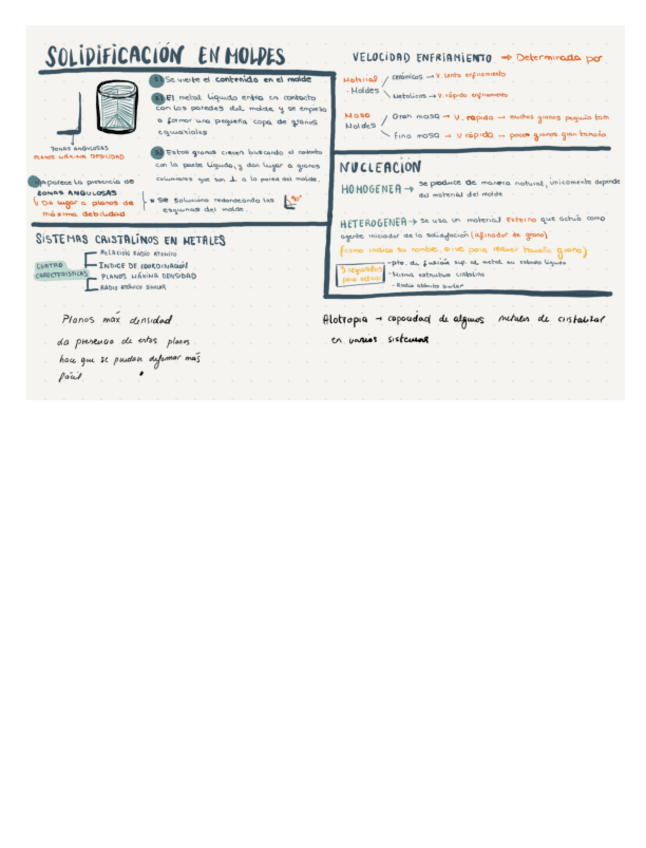 SOLIDIFICACIÓN EN MOLDES
1) Se vierte el contenido en el molde
2) El metal líquido entra en contacto
con las paredes del molde y se empieza
a formar una pequeña capa de granos
equiaxiales
3) Estos granos crecen buscando el
con la parte líquida, y dan lugar a granos
columnares que son ⊥ a la pared del molde.
ZONAS ANGULOSAS
PLANOS MÁXIMA DEBILIDAD
Aparece la presencia de
ZONAS ANGULOSAS
↳ Da lugar a planos de
máxima debilidad
* Se soluciona redondeando las
esquinas del molde.
90°
SISTEMAS CRISTALINOS EN METALES
CUATRO
CARACTERÍSTICAS
RELACIÓN RADIO ATÓMICO
ÍNDICE DE COORDINACIÓN
PLANOS MÁXIMA DENSIDAD
RADIO ATÓMICO SIMILAR
Planos máx densidad
La presencia de estos planos
hace que se puedan deformar más
fácil
VELOCIDAD ENFRIAMIENTO → Determinada por
Material
Moldes
cerámicos → V. lento enfriamiento
Metálicos → V. rápido enfriamiento
Masa
Moldes
Gran masa → V. rápida → muchos granos pequeño tam
Fina masa → V rápida → pocos granos gran tamaño
NUCLEACIÓN
HOMOGENEA → Se produce de manera natural, únicamente depende
del material del molde
HETEROGENEA → Se usa un material externo que actúa como
agente iniciador de la solidificación (afinador de grano)
(como indica su nombre, sirve para reducir tamaño grano)
3 requisitos
para actuar
- Pto. de fusión sup. al metal en estado líquido
- Misma estructura cristalina
- Radio atómico similar
Alotropía → capacidad de algunos metales de cristalizar
en varios sistemas